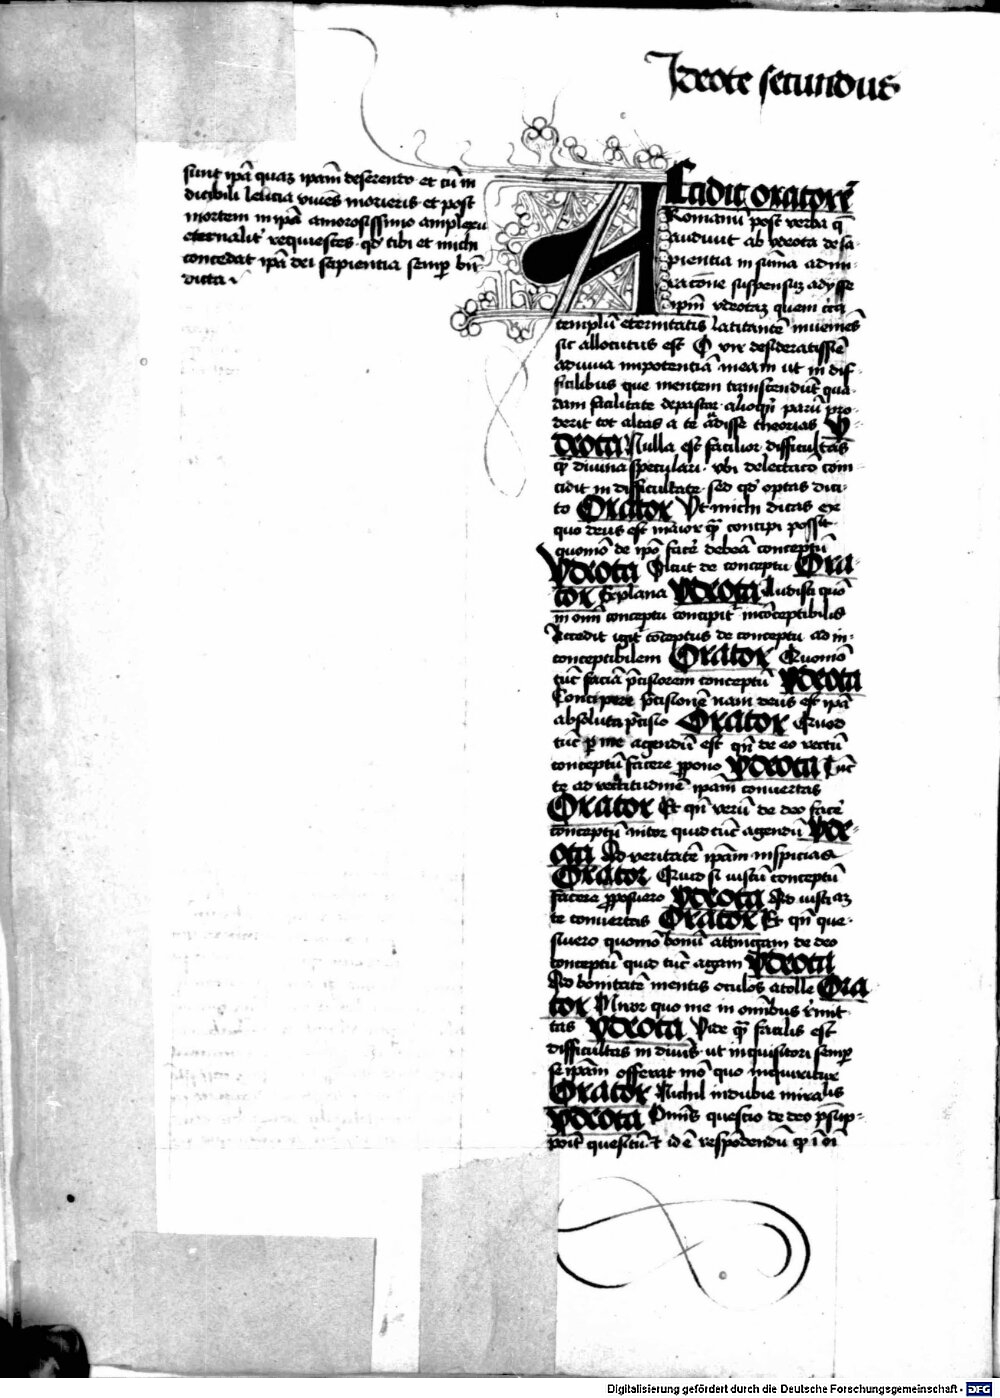 Jdeote secundus
sunt ip̄a quaꝫ ip̄am deserendo et cū in
dicibili leticia viues morieris et post
mortem in ip̄a amorosissimo amplexu
eternalit̄ requiesces qd̄ tibi et michi
concedat ip̄a dei sapientia semꝑ bn̄
dicta
Accidit oratorē
Romanū post verba q̄
audiuit ab ydeota de sa
pientia in sūma admi
racōne suspensuꝫ adysse
ip̄m ydeotaꝫ quem circa
templū eternitatis latitantē inuenies
sic allocutus est O vir desideratissīe
adiuua impotentiā meam ut in dif
ficilibus que mentem transcendūt qua
dam facilitate depascar alioqn̄ parū pro
derit tot altas a te audisse theorias Y
deota Nulla est facilior difficultas
qͣ diuina speculari vbi delectaco coin
cidit in difficultate sed qd̄ optas dici
to Orator Vt michi dicas ex
quo deus est maior qͣ concipi possit
quomō de ip̄o facē debeā conceptū
Ydeota Sicut de conceptu Ora
tor Explana Ydeota Audisti quō
in om̄i conceptu concipit̄ incōceptibilis
Accedit igit̄ cōceptus de conceptu ad in
conceptibilem Orator Quomō
tūc faciā p̄cisiorem conceptū Ydeota
Concipere p̄cisionē nam deus est ip̄a
absoluta p̄cisio Orator Quod
tūc ꝑ me agendū est qn̄ de eo rectū
conceptū facere ꝓpono Ydeota Tūc
te ad rectitudinē ip̄am conuertas
Orator Et qn̄ verū de deo facē
conceptū nitor quid tūc agendū Yde
ota Ad veritatē ip̄am inspicias
Orator Quid si iustū conceptū
facere ꝓposuero Ydeota Ad iusticiaꝫ
te conuertas Orator Et qn̄ que
siuero quomō bonū attingam de deo
conceptū quid tūc agam Ydeota
Ad bonitatē mentis oculos atolle Ora
tor Miror quo me in om̄ibus remit
tas Ydeota Vide qͣ facilis est
difficultas in diuis ut inquisitori semꝑ
se ip̄am offerat mō quo inquiratur
Orator Nichil indubie mirabilis
Ydeota Om̄is questio de deo p̄sup
poit quesitū et id ē respōdendū qͩ ī oī
Digitalisierung gefördert durch die Deutsche Forschungsgemeinschaft - DFG